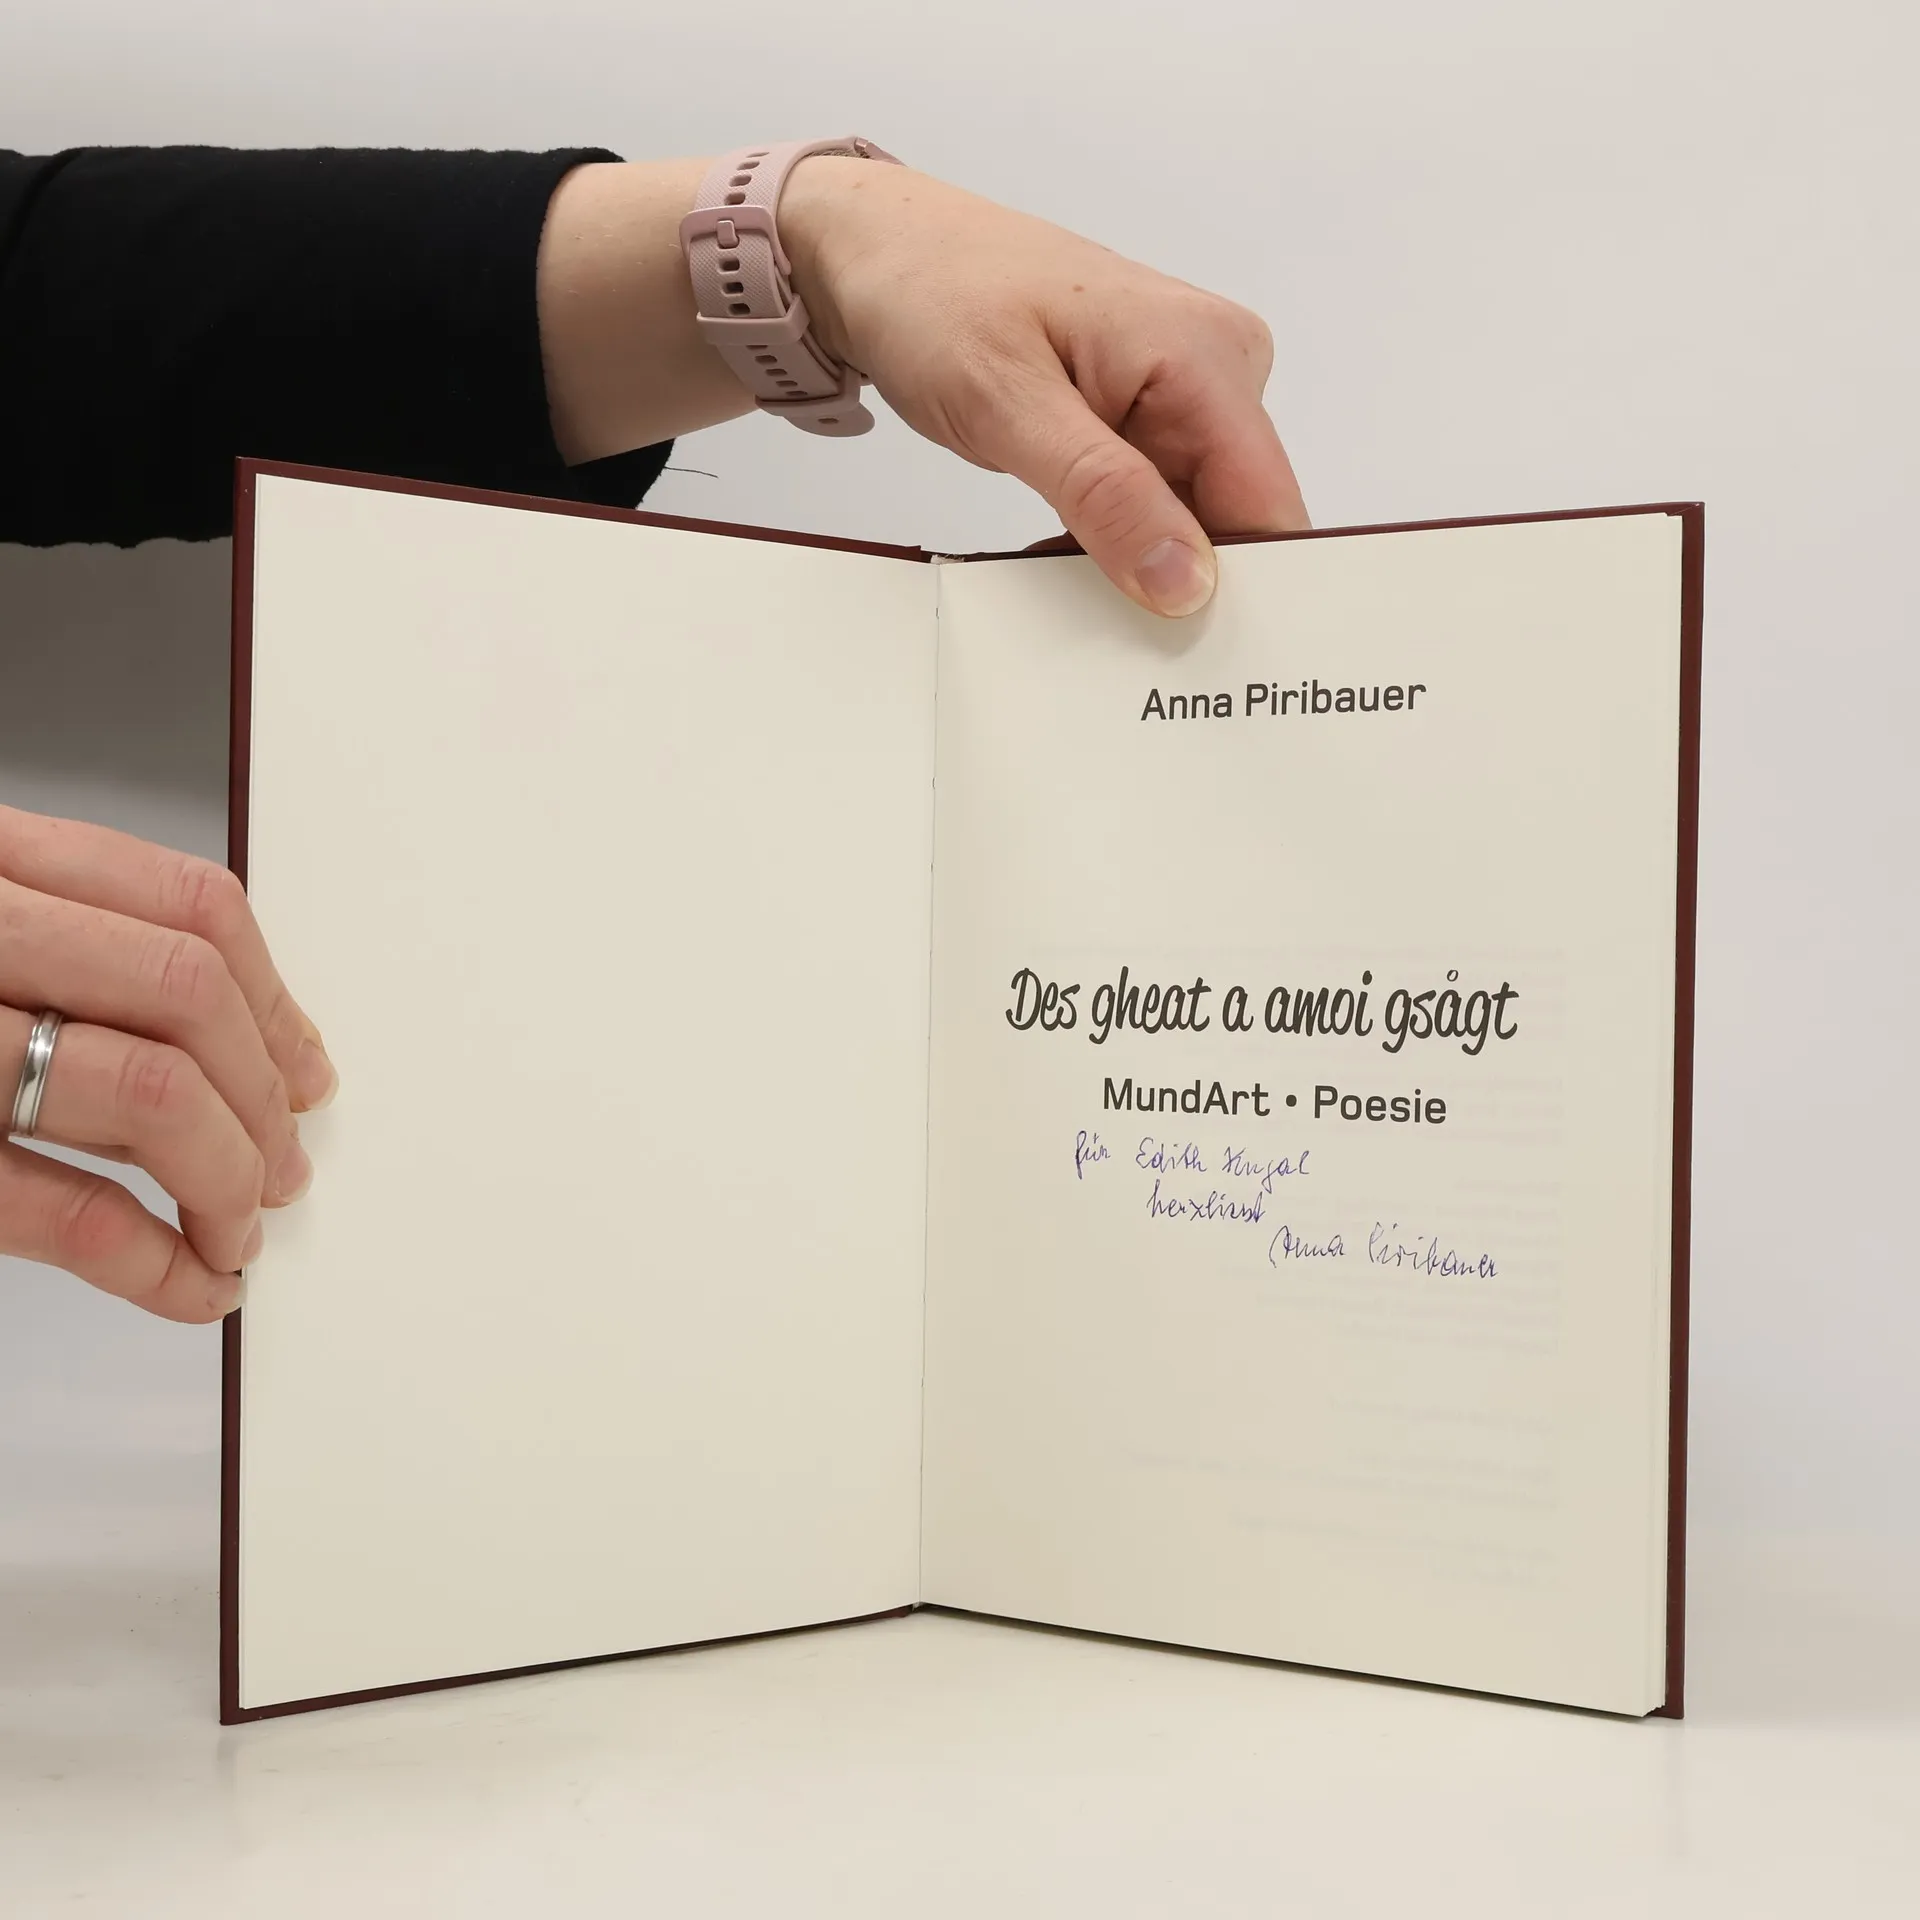 Anna Piribauer
Des gheat a amoi gsågt
MundArt • Poesie
für Edith
herzlichst
Anna Piribauer